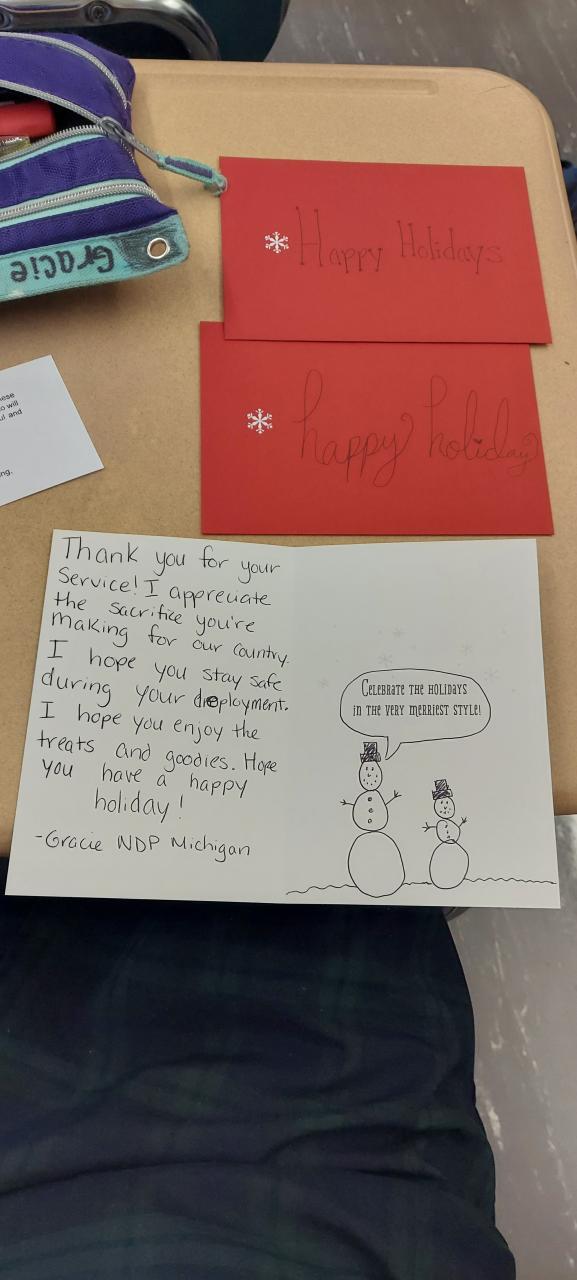 Gracie
Happy Holidays
happy holiday
will
and
Thank you for your
Service! I appreciate
the sacrifice you're
making for our country.
I hope you stay safe
during your deployment.
I hope you enjoy the
treats and goodies. Hope
you have a happy
holiday!
-Gracie NDP Michigan
CELEBRATE THE HOLIDAYS
IN THE VERY MERRIEST STYLE!